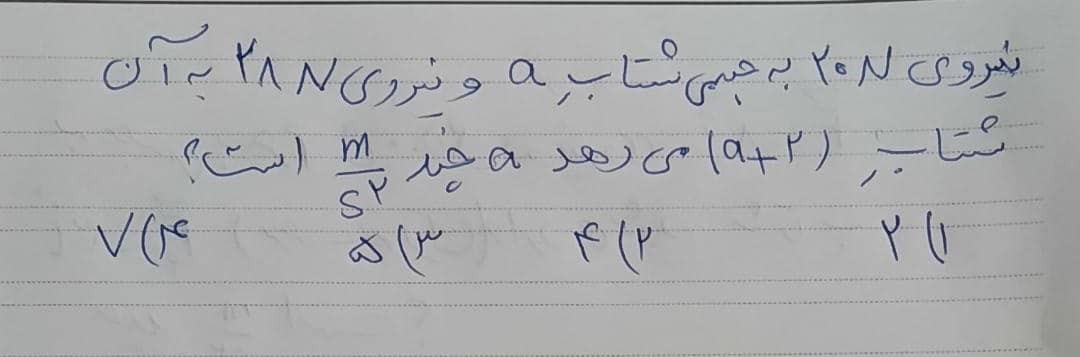 نیروی ۲۰N به جسمی شتاب a و نیروی ۲۸N به آن
شتاب (a+۲) می دهد a چند m/s۲ است؟
۱) ۲ ۲) ۴ ۳) ۵ ۴) ۷